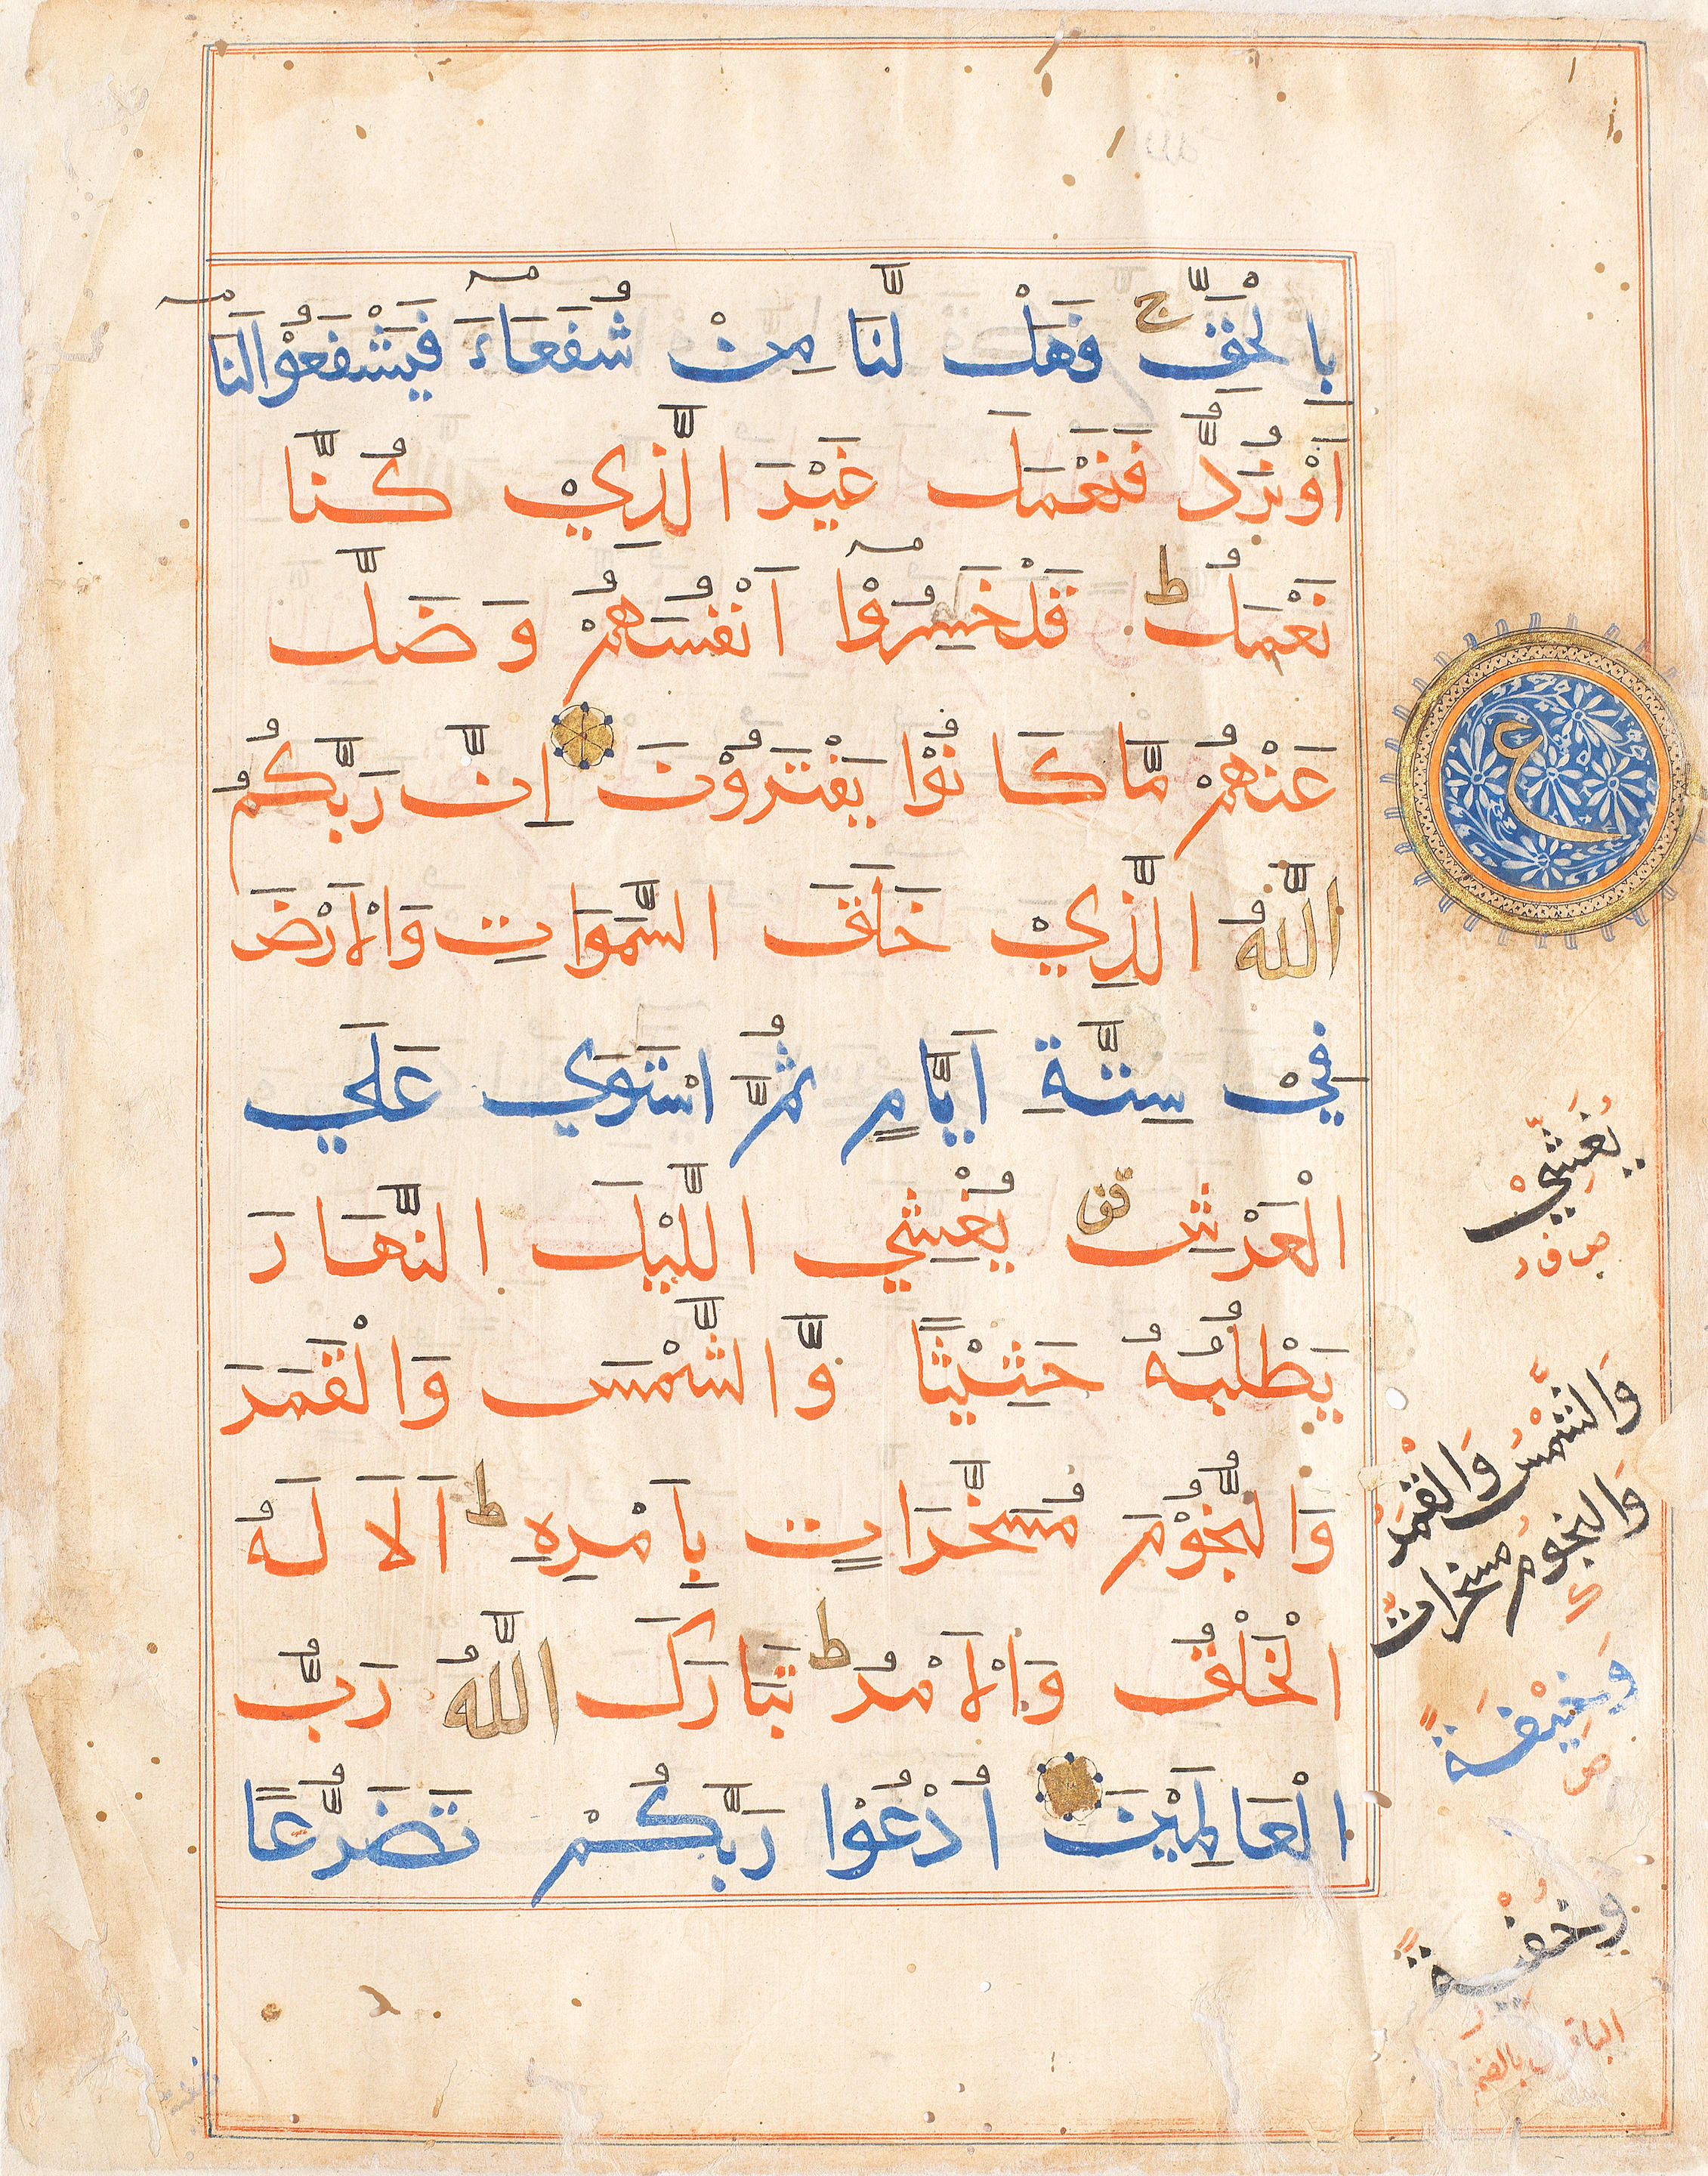 بِالْحَقِّ ج فَهَلْ لَّنَا مِنْ شُفَعَآءَ فَيَشْفَعُوْا لَنَآ
اَوْ نُرَدُّ فَنَعْمَلَ غَيْرَ الَّذِيْ كُنَّا
نَعْمَلُ ط قَدْ خَسِرُوْٓا اَنْفُسَهُمْ وَضَلَّ
عَنْهُمْ مَّا كَانُوْا يَفْتَرُوْنَ اِنَّ رَبَّكُمُ
اللّٰهُ الَّذِيْ خَلَقَ السَّمَوَاتِ وَالْاَرْضَ
فِيْ سِتَّةِ اَيَّامٍ ثُمَّ اسْتَوَي عَلَي
الْعَرْشِ قف يُغْشِي الَّيْلَ النَّهَارَ
يَطْلُبُهُ حَثِيْثًا وَّالشَّمْسَ وَالْقَمَرَ
وَالنُّجُوْمَ مُسَخَّرَاتٍ بِاَمْرِهِ ط اَلَا لَهُ
الْخَلْقُ وَالْاَمْرُ ط تَبَارَكَ اللّٰهُ رَبُّ
الْعَالَمِيْنَ اُدْعُوْا رَبَّكُمْ تَضَرُّعًا
ع
يُغَشِّيْ
ص ف ر
وَالشَّمْسُ وَالْقَمَرُ
وَالنُّجُوْمُ مُسَخَّرَاتٌ
وَخِيْفَةً
ص
وَخُفْيَةً